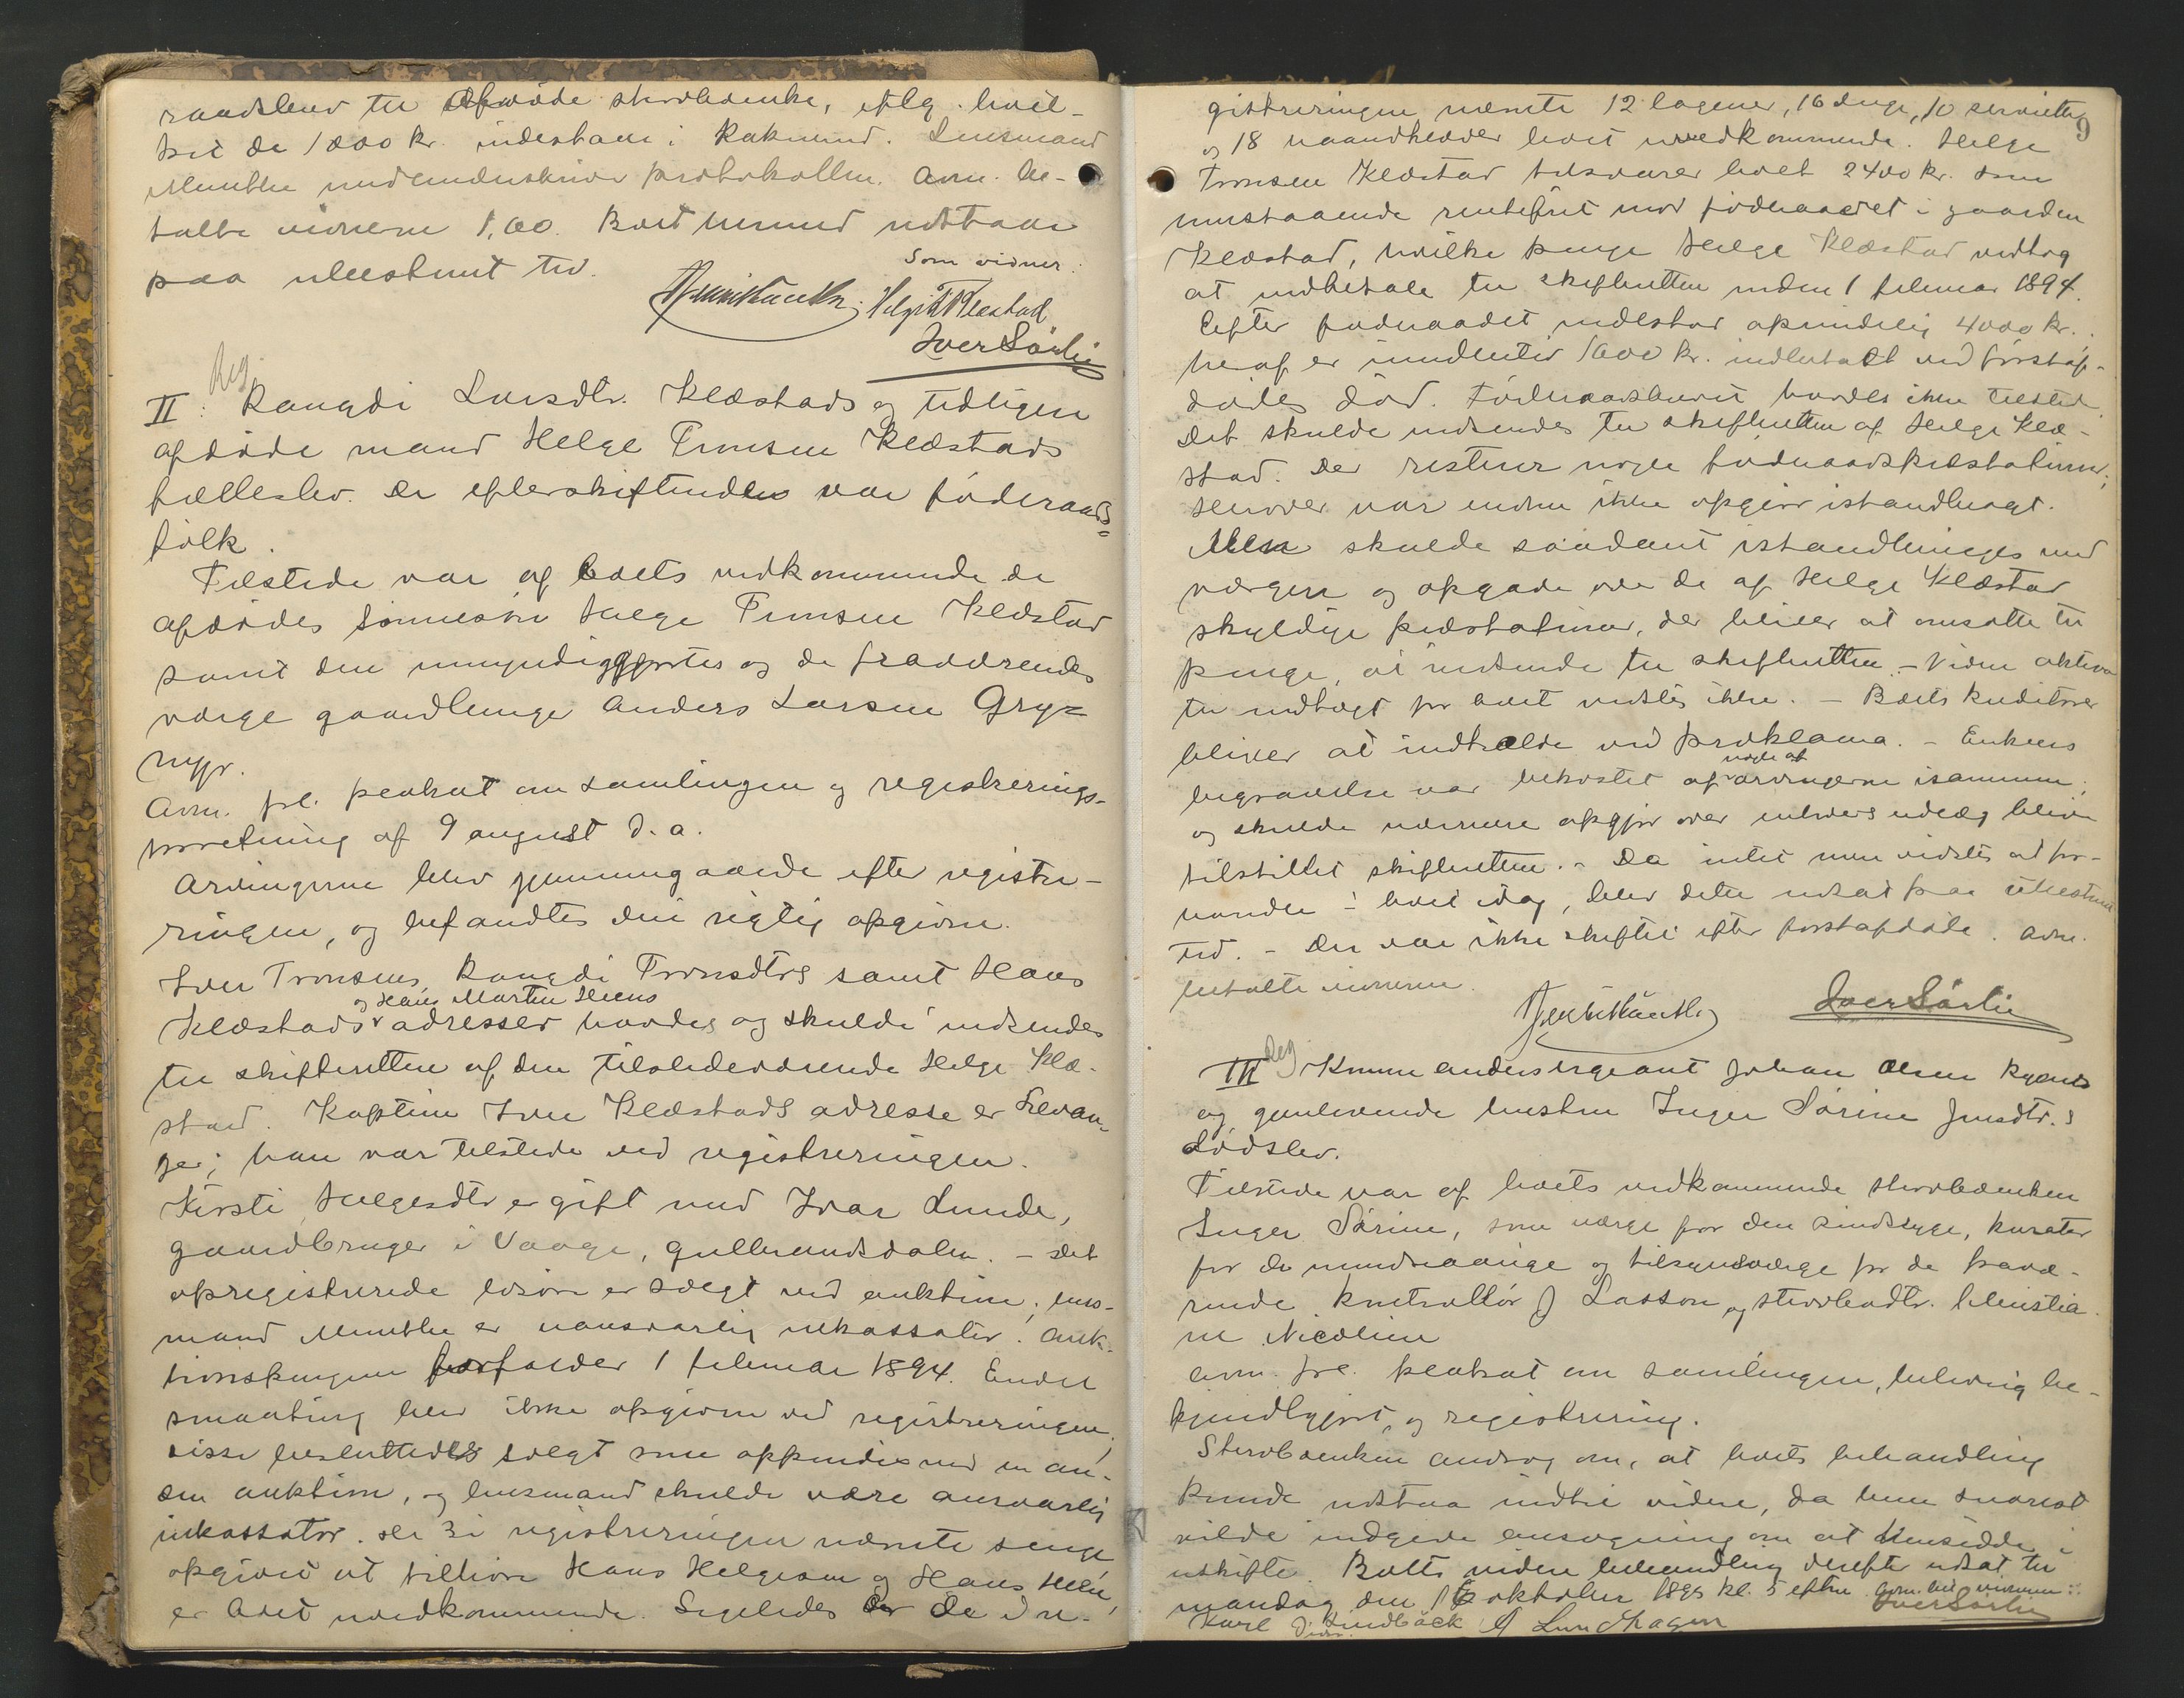 raadsbrev til afdøde sterboenke, iflg. hvil-
ket de 1000 kr. indestaar i
Munthe medunderskriver protokollen. Avm. be-
talte vidnerne 1,60. Boet hermed udstaar
paa ubestemt tid.
Som vidner:
Helge T Klæstad
Iver Sørlie
Reg.
II: Rangdi Larsdtr. Klæstads og tidligere
afdøde mand Helge Tronsen Klæstads
fællesbo. De efterskiftendes var føderaads-
folk.
Tilstede var af boets vedkommende de
afdødes sønnesøn Helge Tronsen Klæstad
samt den umyndiggjortes og de fraværendes
værge gaardbruger Anders Larsen Gry-
Avm. frl. plakat om samlingen og registrerings-
forretning af 9 august d. a.
Arvingerne blev gjennemgaaede efter registre-
ringen, og befandtes den rigtig opgiven.
Iver Tronsens, Rangdi Tronsdtrs samt Hans
og Hans Martin Heens
Klæstads adresser havdes og skulde indsendes
til skifteretten af den tilstedeværende Helge Klæ-
stad. Kaptein Iver Klæstads adresse er Levan-
ger; han var tilstede ved registreringen.
Kirsti Helgesdtr er gift med Ivar Lunde,
gaardbruger i Vaage, Gulbrandsdalen. - Det
opregistrerede løsøre er solgt ved auktion; lens-
mand Munthe er uansvarlig inkassator. Auk-
tionspengene forfalder 1 februar 1894. Endel
smaating blev ikke opgiven ved registreringen,
disse besluttedes solgt som appendix ved en an-
den auktion, og lensmand skulde være ansvarlig
inkassator. De 3 i registreringen nævnte senge
opgivet at tilhøre Hans Helgesen og Hans Helie,
er boet uvedkommende. Ligeledes er de i re-
9
gistreringen nævnte 12 lagener, 16 duge, 10 servietter
og 18 haandklæder boet uvedkommende. Helge
Tronsen Klæstad tilsvarer boet 2400 kr. som
henstaaende rentefrit mod føderaadet i gaarden
Klæstad, hvilke penge Helge Klæstad vedtog
at indbetale til skifteretten inden 1 februar 1894.
Efter føderaadet indestod oprindelig 4000 kr.
heraf er imidlertid 1600 kr. indbetalt ved førstaf-
dødes død. Føderaadsbrevet havdes ikke tilstede.
Det skulde indsendes til skifteretten af Helge Klæ-
stad. Der resterer nogle føderaadspræstationer;
herover var endnu ikke opgjør istandbragt.
Men skulde saadant istandbringes med
værgen og opgave over de af Helge Klæstad
skyldige præstationer, der bliver at omsætte til
penge, at indsende til skifteretten. - Videre aktiva
til indtægt for boet vidstes ikke. - Boets kreditorer
bliver at indkalde ved proklama. - Enkens
nogle af
begravelse var bekostet af arvingerne isammen,
og skulde nærmere opgjør over enhvers udlæg blive
tilstillet skifteretten. - Da intet mere vidstes at for-
handle i boet idag, blev dette udsat paa ubestemt
tid. - Der var ikke skiftet efter førstafdøde. Avm.
betalte vidnerne.
Iver Sørlie
Reg
III Kommandersergeant Johan Olsen
og gjenlevende hustru Inger Sørine Jensdtr.s
dødsbo.
Tilstede var af boets vedkommende sterboenken
Inger Sørine, som værge for den sindssyge, kurator
for de mindreaarige og tilsynsværge for de fravæ-
rende kontrollør J Lasson, og sterbodtr. Christia-
ne Nicoline
Avm. frl. plakat om samlingen, behørig be-
kjendtgjort, og registrering.
Sterboenken androg om, at boets behandling
kunde udstaa indtil videre, da hun snarest
vilde indgive ansøgning om at hensidde i
uskifte. Boets videre behandling derefter udsat til
mandag den 16 oktober 1893 kl. 5 efterm. Avm. bet. vidnerne:
Iver Sørlie
Karl Lindbäck